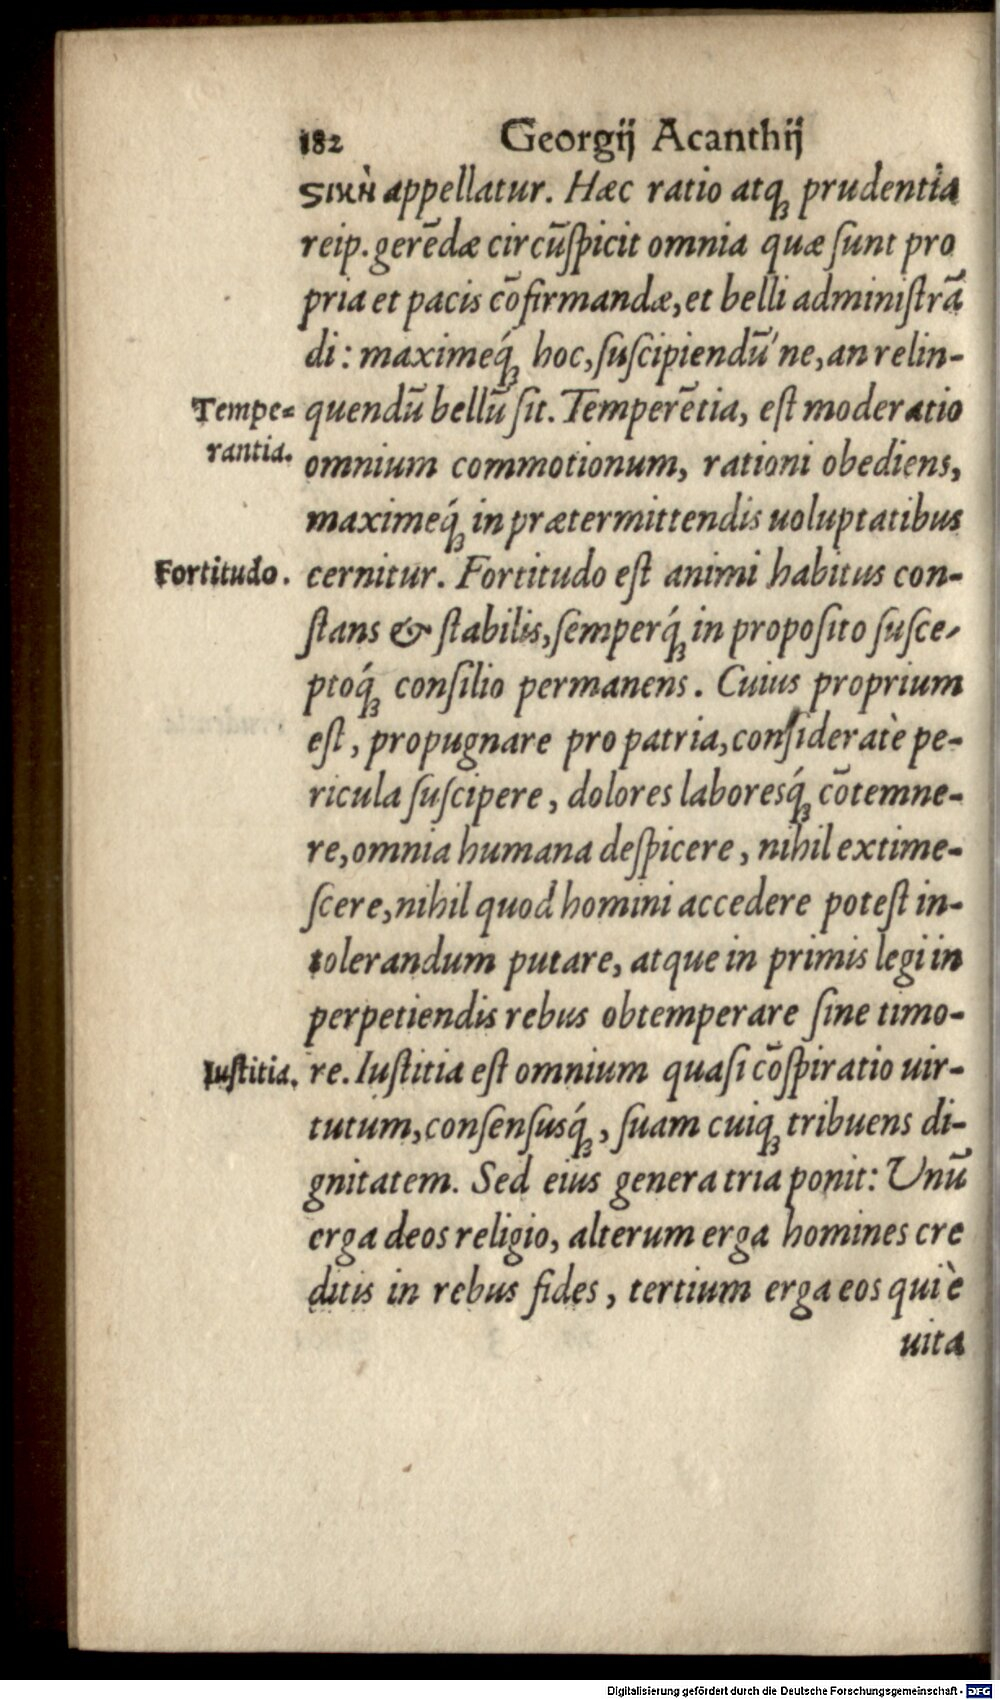 182 Georgij Acanthij
ϛικὴ appellatur. Hæc ratio atq́ꝫ prudentia
reip. gerẽdæ circũſpicit omnia quæ ſunt pro
pria et pacis cõfirmandæ, et belli adminiſtrã
di: maximeq́ꝫ hoc, ſuſcipiendũ'ne, an relin-
Tempe= quendũ bellũ ſit. Temperẽtia, eſt moderatio
rantia. omnium commotionum, rationi obediens,
maximeq́ꝫ in prætermittendis uoluptatibus
Fortitudo. cernitur. Fortitudo eſt animi habitus con-
ſtans & ſtabilis, ſemperq́ꝫ in propoſito ſuſce-
ptoq́ꝫ conſilio permanens. Cuius proprium
eſt, propugnare pro patria, conſideratè pe-
ricula ſuſcipere, dolores laboresq́ꝫ cõtemne-
re, omnia humana deſpicere, nihil extime-
ſcere, nihil quod homini accedere poteſt in-
tolerandum putare, atque in primis legi in
perpetiendis rebus obtemperare ſine timo-
Iuſtitia. re. Iuſtitia eſt omnium quaſi cõſpiratio uir-
tutum, conſenſusq́ꝫ, ſuam cuiqꝫ tribuens di-
gnitatem. Sed eius genera tria ponit: Unũ
erga deos religio, alterum erga homines cre
ditis in rebus fides, tertium erga eos qui è
uita
Digitalisierung gefördert durch die Deutsche Forschungsgemeinschaft - DFG